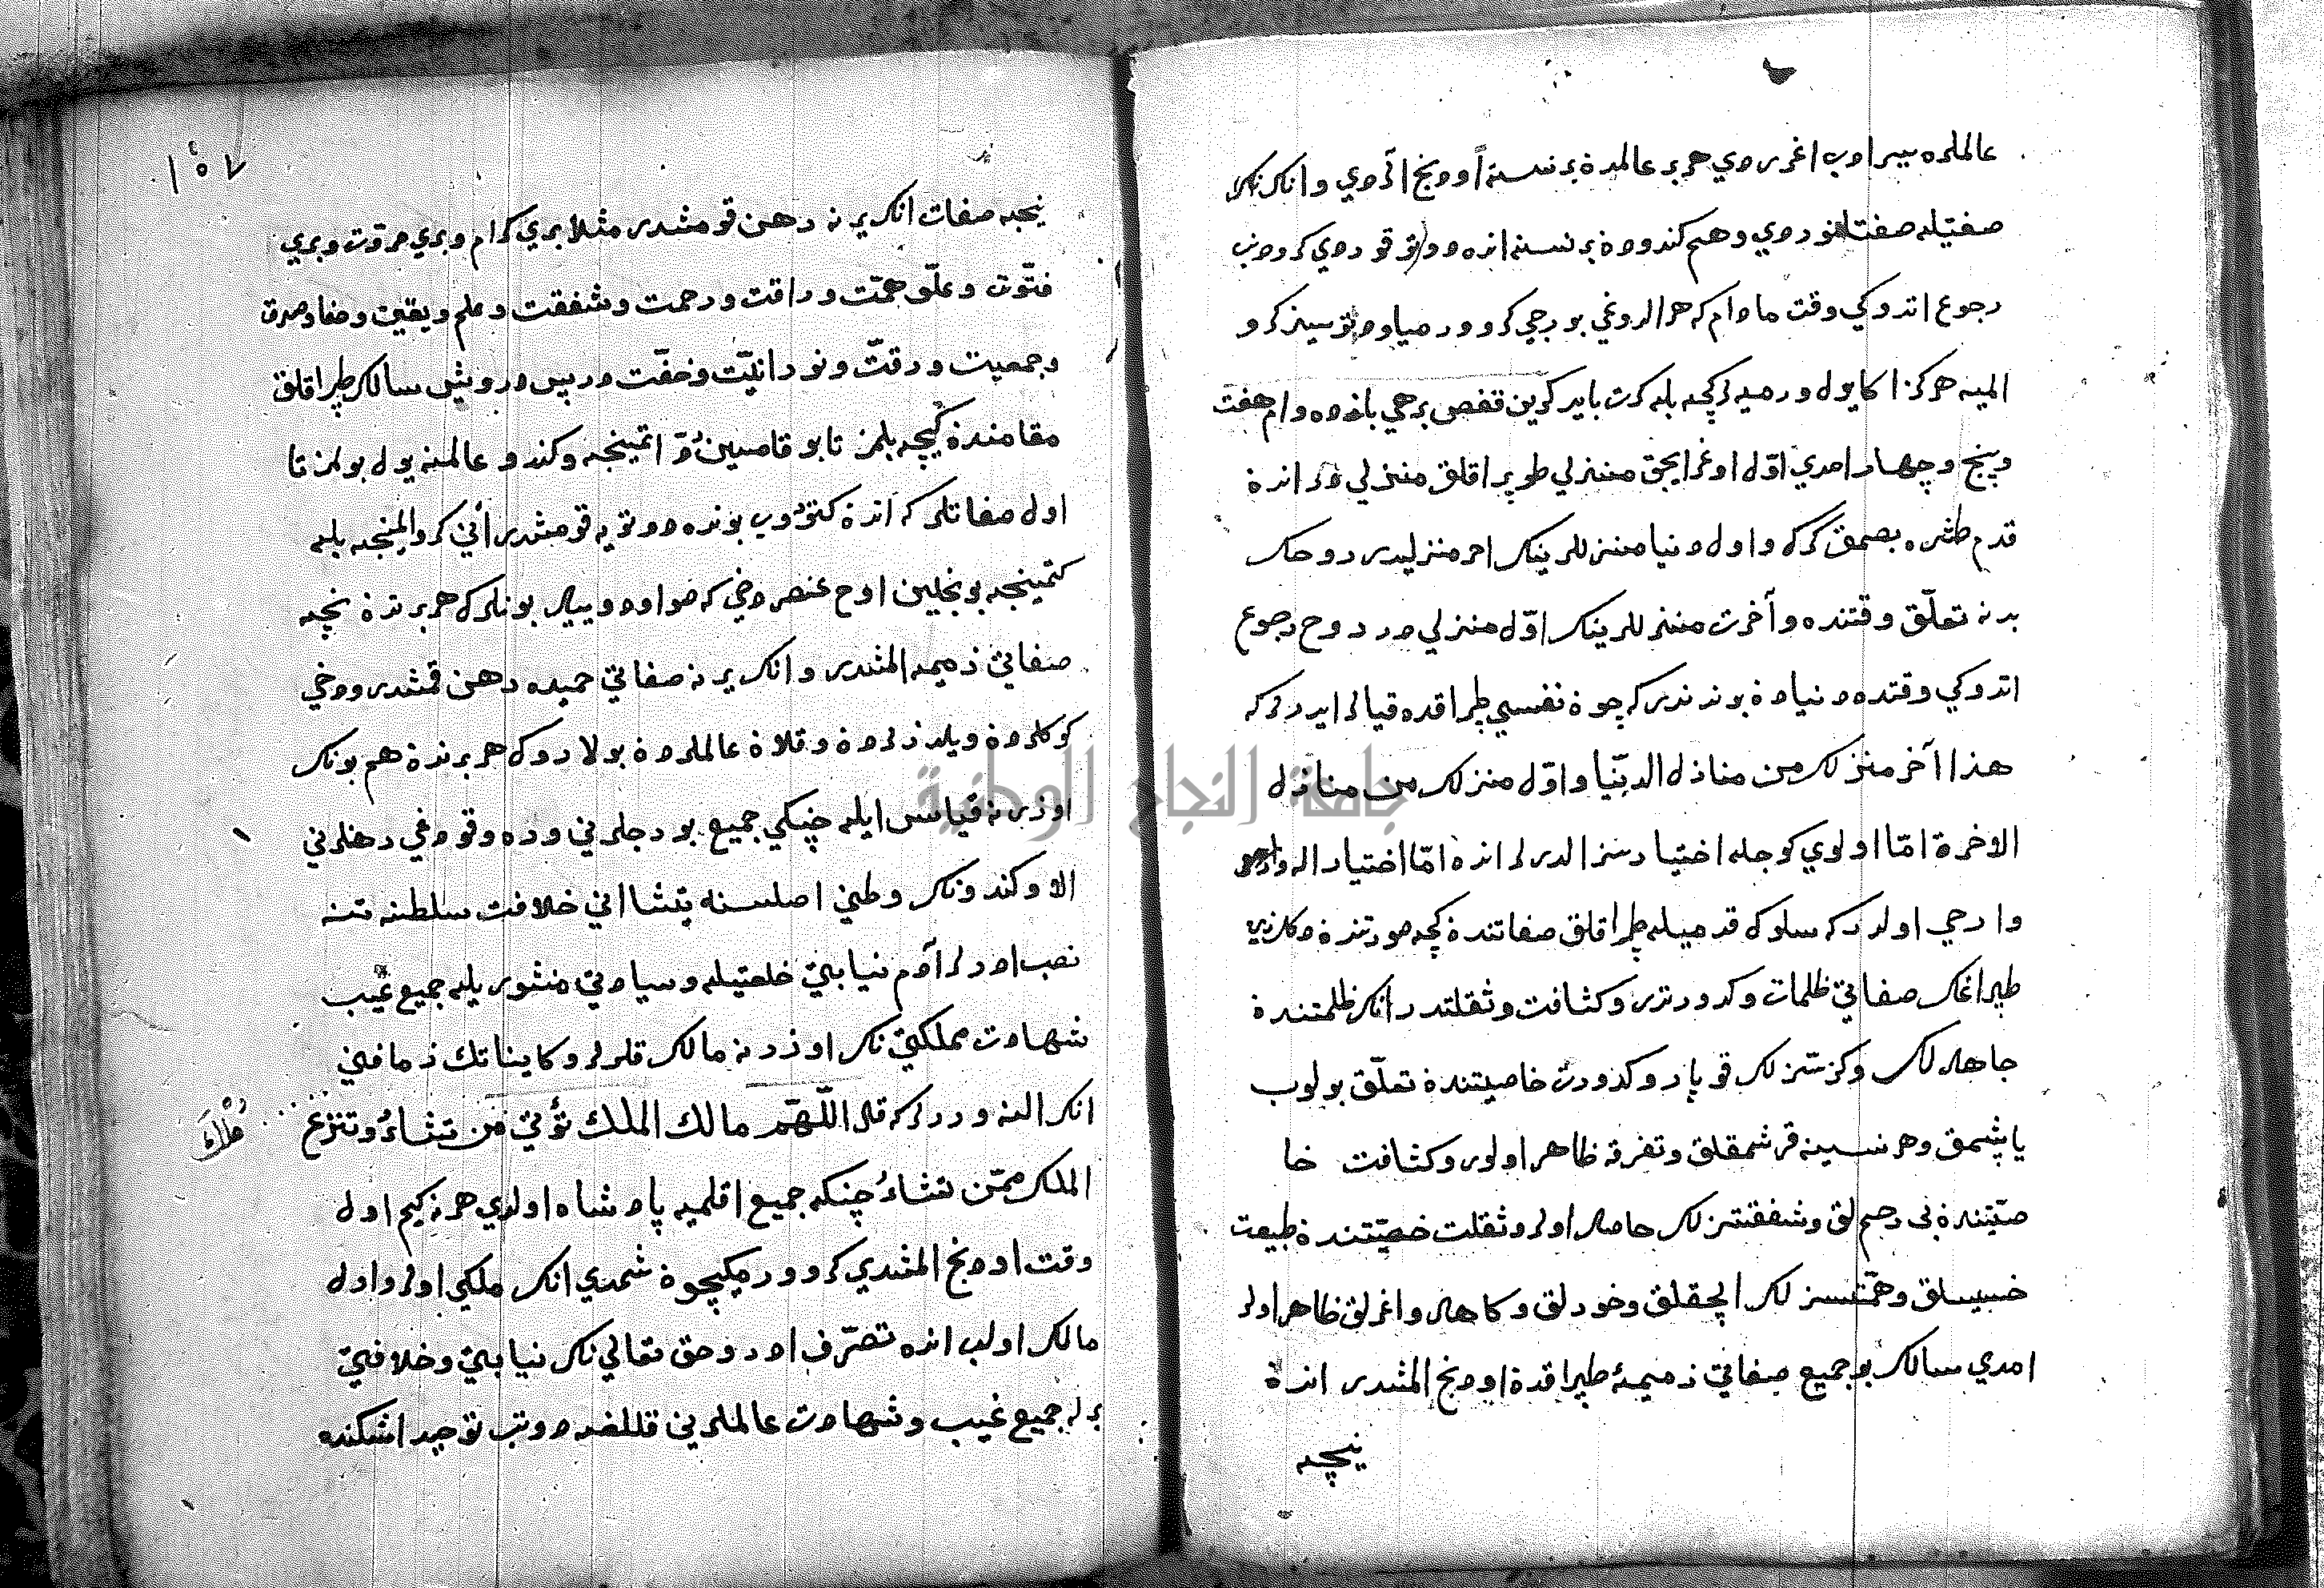 عالملره سير ادوب اغررودي هر بر عالمده بر نسنه اودنج الردي وانك
صفتيله صفتلنوردي وهم كندوده بر نسنه انده دوتو قوردي كرو دونب
رجوع اتدوكي وقت مادام كه هر الدوغي بورجي كرو ورميا ودوتوسين كرو
المیه هركز اكا يول ورميه لر كچه بله كرت بايد كزين قفص برهی بانده ودام هفت
وپنج وچهار امدي اوّل اوغرايجق منزلي طوپراقلق منزلي در انده
قدم طشره بصمق كرك واول دنيا منزللرينك اخر منزليدر روحك
بدنه تعلّق وقتنده وآخرت منزللرينك اوّل منزلي در روح رجوع
اتدوكي وقتده دنياده بوندندر كه چوق نفسي طپراقده قيالر ايدرلر كه
هذا آخر منزلك من منازل الدنيا واوّل منزلك من منازل
الاخرة امّا اولوي كوجله اختيارسز الدرلر انده امّا اختيار اله
واردي اولدر كه سلوك قدميله طپراقلق صفاتنده كچه صورتنده
طپراغك صفاتي ظلمات وكدورتدر وكثافت وثقلتدر انك ظلمتنده
جاهللك وكزسزلك قوپار وكدورت خاصيتنده تعلّق بولوب
ياپشمق وهر نسينه قرشمقلق وتفرقه ظاهر اولور وكثافت خا
صيّتنده بي رحملق وشفقتسزلك حاصل اولر وثقلت خصيّتنده طبيعت
خسيسلق وهمّتسزلك الچقلق وخورلق وكاهل واغرلق ظاهر اولر
امدي سالك بو جميع صفاتي ذميمهٔ طپراقده اودنج المشدر انده
نيچه
١٥٧
نيجه صفات انك يرنه رهن قومشدر مثلا بري كرام وبري مروّت وبري
فتوّت وعلّو همّت ورافت ورحمت وشفقت وعلم ويقين وصفا وصدق
وجمعيت ورقّت ونورانيّت وخفّت در پس درويش سالك طپراقلق
مقامنده كيچه بلمز تا بو قامسين اتمينجه وكندو عالمنه يول بولمز تا
اول صفاتلر كه انده كتوروب بونده دوتويه قومشدر اني كرو المينجه بله
كتمينجه بونجلين اوچ عنصر دخي كه صو اود و ييل بونلرك هر برنده نچه
صفاتي ذميمه المشدر وانك يرنه صفاتي حميده رهن قمشدر ودخي
كوكلرده ويلدزلرده وقلان عالملرده بولاردوك هر برنده هم بونك
اوزرنه قياس ايله چنكي جميع بورجلرني ورده وقودغي رهنلرني
الا وكندونك وطني اصلسنه يتشا اني خلافت سلطنتنه
نصب ادرلر آدم نيابتي خلعتيله وسيادتي منشوريله جميع غيب
شهادت مملكتي نك اوزرنه مالك قلرلر وكايناتك زمامني
انك النه ورر لر كه قل اللّهم مالك الملك تؤتي من تشاء وتنزع
ملك
الملك ممّن تشاء چنكه جميع اقلميه پادشاه اولدي هر نه كيم اول
وقت اودنج المشدي كرو ورميكچون شمدي انك ملكي اولر واول
مالك اولب انده تصرّف ادر وحق تعالي نك نيابتي وخلافتي
برله جميع غيب وشهادت عالملرني قللغه دوتب توحيد اشكنه